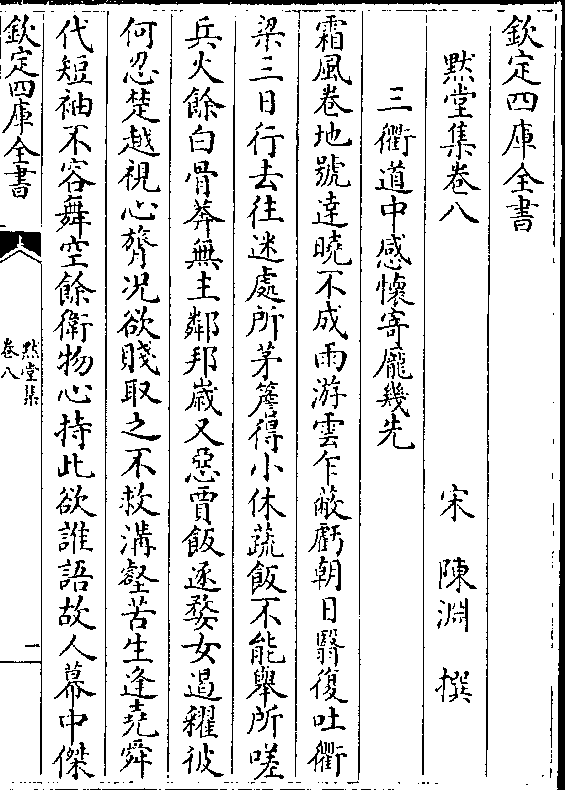 欽定四庫全書
默堂集卷八
宋 陳淵 撰
三衢道中感懷寄龐幾先
霜風卷地號達曉不成雨游雲乍蔽虧朝日翳復吐衢
梁三日行去往迷處所茅簷得小休蔬飯不能舉所嗟
兵火餘白骨莽無主鄰邦嵗又惡賈飯逐婺女遏糴彼
何忍楚越視心膂况欲賤取之不救溝壑苦生逢堯舜
代短袖不容舞空餘衛物心持此欲誰語故人幕中傑
欽定四庫全書
默堂集
卷八
一